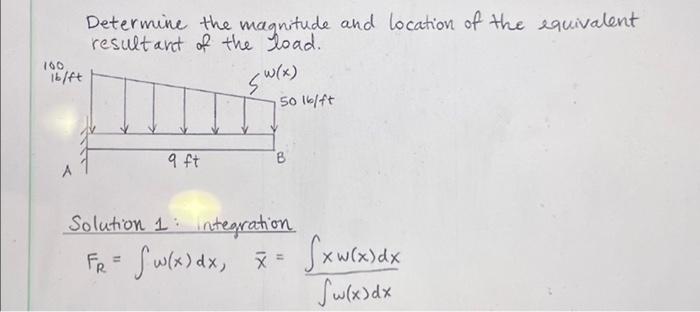 Determine the magnitude and location of the equivalent
resultant of the load.
100
lb/ft
w(x)
50 lb/ft
9 ft
A
B
Solution 1: Integration
F_R = ∫ w(x) dx, x̄ = ∫ x w(x) dx
∫ w(x) dx